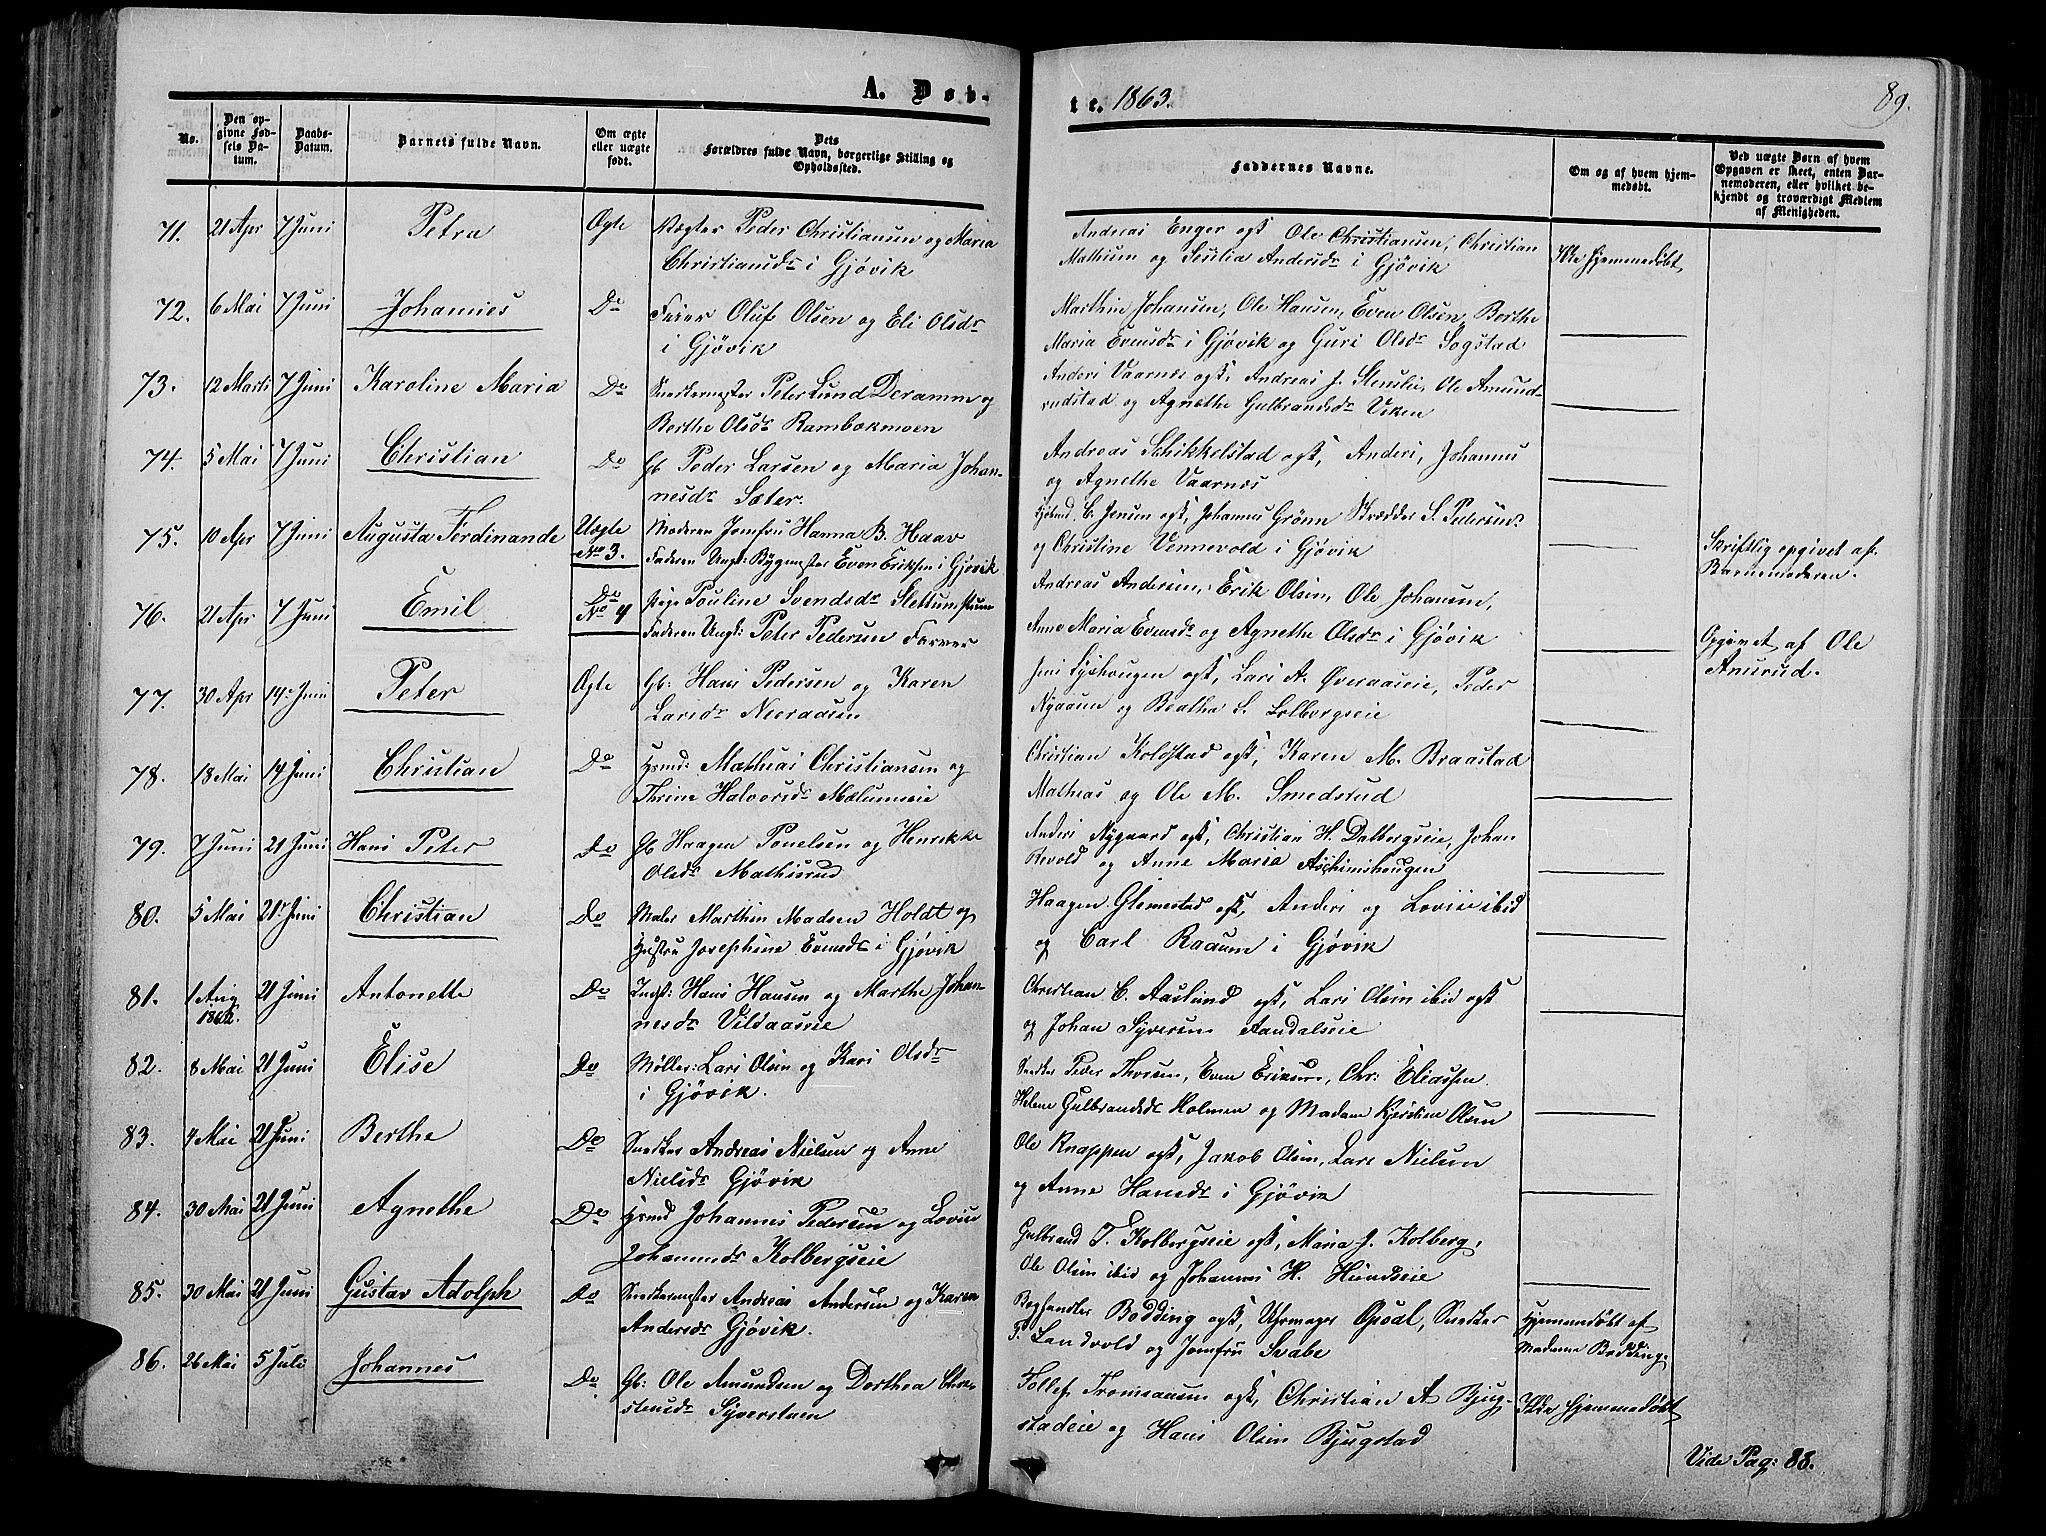 A. Døb-
te. 1863. 89.
No.
Den op-
givne Fød-
sels Da-
tum.
Daabs-
Datum.
Barnets fulde Navn.
Om ægte
eller uægte
født.
Dets
Forældres fulde Navn, borgerlige Stilling og
Opholdssted.
Faddernes Navne.
Om og af hvem hjem-
medøbt.
Ved uægte Børn af hvem
Opgaven er skeet, enten Bar-
nemoderen, eller hvilket be-
kjendt og troværdigt Medlem
af Menigheden.
71. 21 Apr 7 Juni Petra Ægte Vægter Peder Christiansen og Maria
Christiansdr i Gjøvik
Andreas Enger og Ole Christiansen, Christian
Mathisen og Sesilia Andersdr i Gjøvik
Ikke hjemmedøbt
72. 6 Mai 7 Juni Johannes Do Farver Oluf Olsen og Eli Olsdr
i Gjøvik
Marthin Johansen, Ole Hansen, Even Olsen, Berthe
Maria Evensdr i Gjøvik og Guri Olsdr Sogstad
73. 12 Marts 7 Juni Karoline Maria Do Snedkermester Peter Lund Deramm og
Berthe Olsdr Rambækmoen
Anders Vaarnæs ogst, Andreas J. Stenslie, Ole Amund-
rudstad og Agnethe Gulbrandsdr Viken
74. 5 Mai 7 Juni Christian Do Gb Peder Larsen og Maria Johan-
nesdr Sæter.
Andreas Schikkelstad ogst, Anders, Johannes
og Agnethe Vaarnæs
75. 10 Apr 7 Juni Augusta Ferdinande Uægte
No 3.
Moderen Jomfru Hanna B. Haav
Faderen Ungk: Bygmester Even Eriksen i Gjøvik
C. Jensen ogst, Johannes Grønn Skrædder S. Pedersen
og Christine Vennevold i Gjøvik
Skriftlig opgivet af
Barnemoderen.
76. 21 Apr 7 Juni Emil Do
No 4
Pige Pouline Svendsdr Slettumstuen
Faderen Ungk: Peter Pedersen Farver
Andreas Andersen, Erik Olsen, Ole Johansen,
Anne Maria Evensdr og Agnethe Olsdr i Gjøvik
Opgivet af Ole
Amsrud.
77. 30 Apr 14 Juni Peter Ægte Gb: Hans Pedersen og Karen
Larsdr Neeraasen
Jens Lyshougen ogst, Lars A. Øveraaseie, Peder
Nyaasen og Beatha S. Kolbergseie
78. 18 Mai 14 Juni Christian Do Hsmd: Mathias Christiansen og
Thrine Halvorsdr Mælumseie
Christian Koldstad ogst, Karen M. Braastad
Mathias og Ole M. Smedsrud
79. 7 Juni 21 Juni Hans Peter Do Gb Haagen Ponelsen og Henrikke
Olsdr Mathisrud
Anders Nygaard ogst, Christian H. Dalborgseie, Johan
Revold og Anne Maria Aschimshougen
80. 5 Mai 21 Juni Christian Do Maler Marthin Madsen Holdt og
Hustru Josephine Evensdr i Gjøvik
Haagen Glemestad ogst, Anders og Lovise ibid
og Carl Raaum i Gjøvik
81. 1 Aug
1862.
21 Juni Antonette Do Indst: Hans Hansen og Marthe Johan-
nesdr Vildaaseie
Christian C. Aaslund ogst, Lars Olsen ibid ogst
og Johan Syversen Aandalseie
82. 8 Mai 21 Juni Elise Do Møller: Lars Olsen og Kari Olsdr
i Gjøvik.
Snedker Peder Thorsen, Even Eriksen, Chr: Eliassen.
Helene Gulbrandsdr Holmen og Madam Kjerstine Olsen
83. 4 Mai 21 Juni Berthe Do Snedker Andreas Nielsen og Anne
Nielsdr Gjøvik
Ole Knappen ogst, Jakob Olsen, Lars Nielsen
og Anne Hansdr i Gjøvik
84. 30 Mai 21 Juni Agnethe Do Hsmd Johannes Pedersen og Lovise
Johannesdr Kolbergseie
Gulbrand T. Kolbergseie ogst, Maria J. Kolberg,
Ole Olsen ibid og Johannes H. Hundseie
85. 30 Mai 21 Juni Gustav Adolph Do Snedkermester Andreas Andersen og Karen
Andersdr Gjøvik.
Boghandler Bodding ogst, Uhrmager Opsal, Snedker
T. Landvold og Jomfru Svabe
Hjemmedøbt af
Madame Bodding.
86. 26 Mai 5 Juli Johannes Do Gb: Ole Amundsen og Dorthea Chri-
stensdr Syverstuen
Tollef Tromsaasen ogst, Christian A Bjug-
stadeie og Hans Olsen Bjugstad
Ikke hjemmedøbt
Vide Pag: 88.